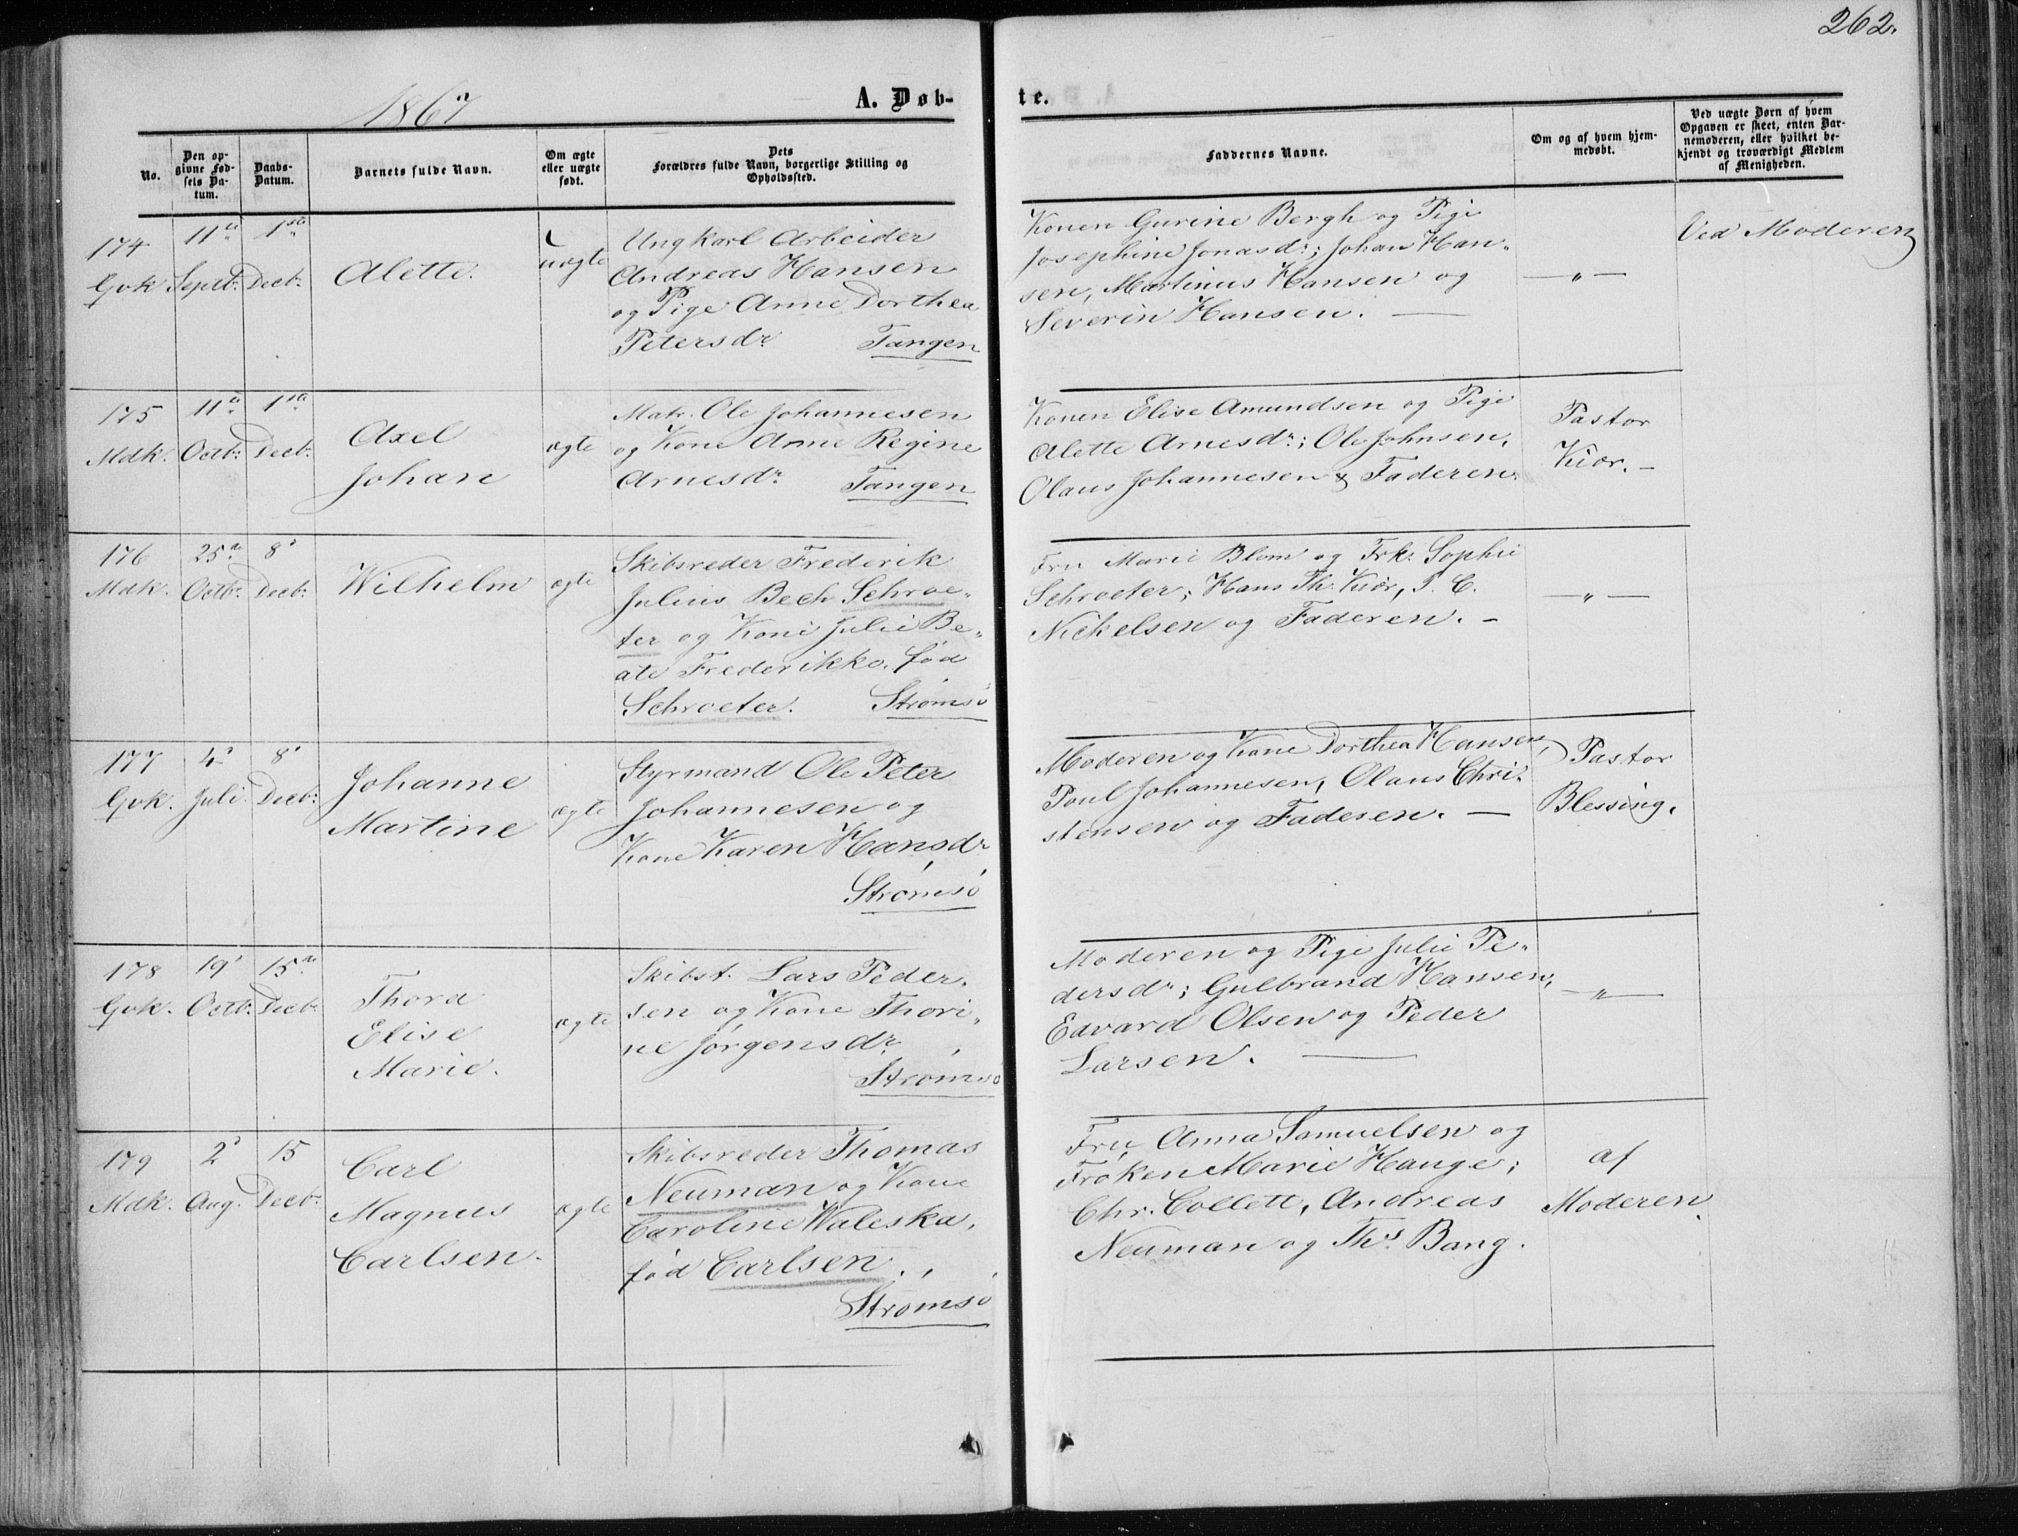 262.
1867
A. Døb-
te.
No.
Den op-
givne Fød-
sels Da-
tum.
Daabs-
Datum.
Barnets fulde Navn.
Om ægte
eller uægte
født.
Dets
Forældres fulde Navn, borgerlige Stilling og
Opholdssted.
Faddernes Navne.
Om og af hvem hjem-
medøbt.
Ved uægte Børn af hvem
Opgaven er skeet, enten Bar-
nemoderen, eller hvilket be-
kjendt og troværdigt Medlem
af Menigheden.
174
Gvk
11te
Septbr.
1ste
Decbr.
Alette.
uægte
Ungkarl Arbeider
Andreas Hansen
og Pige Anne Dorthea
Petersdr. Tangen
Konen Gurine Bergh og Pige
Josephine Jonasdr; Johan Han-
sen, Martinus Hansen og
Severin Hansen. —
—„—
Ved Moderen
175
Mdk.
11te
Octbr.
1ste
Decbr.
Axel
Johan
ægte
Matr. Ole Johannesen
og Kone Anne Regine
Arnesdr. Tangen
Konen Elise Amundsen og Pige
Alette Arnesdr; Ole Johnsen,
Olaus Johannesen & Faderen.
Pastor
Kiær. —
176
Mdk.
25de
Octbr.
8de
Decbr.
Wilhelm
ægte
Skibsreder Frederik
Julius Bech Schroe-
ter og Kone Julie Be-
ate Frederikke, fød
Schroeter. Strømsö
Fru Marie Blom og Frk. Sophie
Schroeter; Hans Th. Kiær, J. C.
Nickelsen og Faderen. —
—„—
177
Gvk.
4de
Juli.
8de
Decbr.
Johanne
Martine
ægte
Styrmand Ole Peter
Johannesen og
Kone Karen Hansdr.
Strømsö
Moderen og Kone Dorthea Hansen,
Poul Johannesen, Olaus Chri-
stensen og Faderen. —
Pastor
Blessing.
178
Gvk.
19de
Octbr.
15de
Decbr.
Thora
Elise
Marie.
ægte
Skibst. Lars Peder-
sen og Kone Thori-
ne Jørgensdr.
Strømsö
Moderen og Pige Julie Pe-
dersdr; Gulbrand Hansen,
Edvard Olsen og Peder
Larsen. —
—„—
179
Mdk.
2de
Aug.
15
Decbr.
Carl
Magnus
Carlsen.
ægte
Skibsreder Thomas
Neuman og Kone
Caroline Waleska,
fød Carlsen.
Strømsö
Fru Anna Samuelsen og
Frøken Marie Hauge;
Chr. Collett, Andreas
Neuman og Ths. Bang.
af
Moderen.